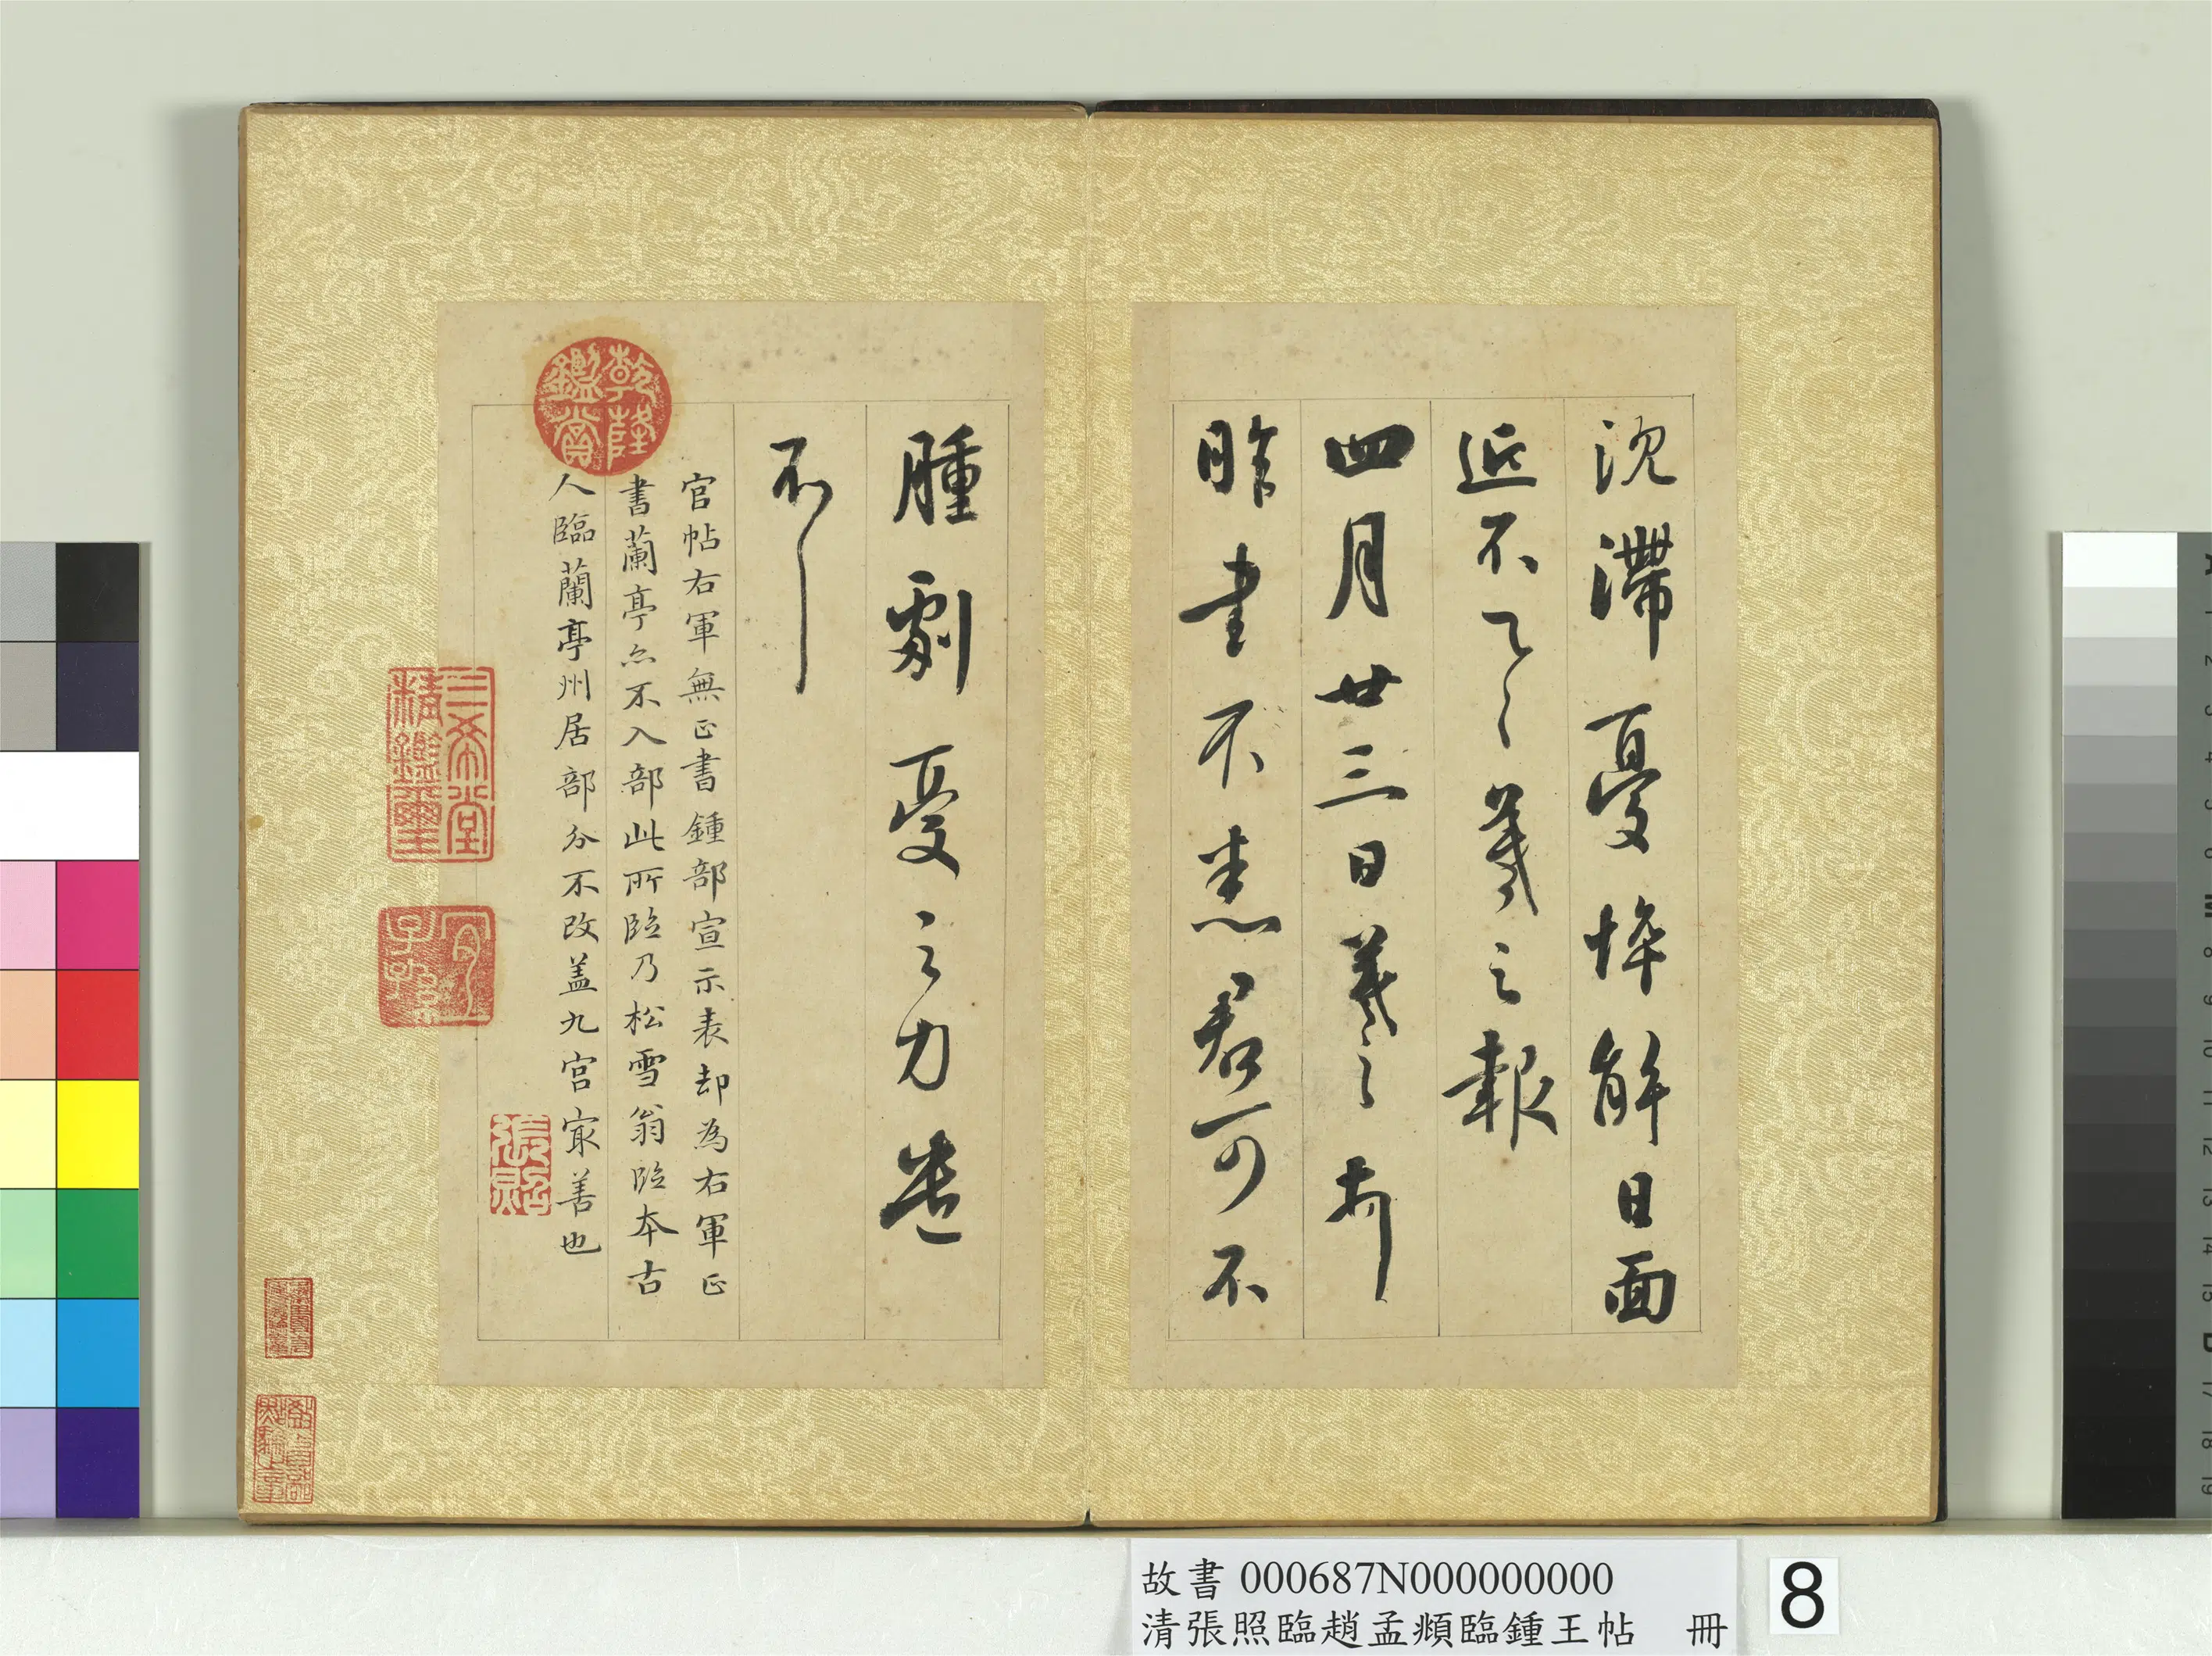 沈滯憂悴解日面
近不一一羲之報
四月廿三日羲之頓
昨書不悉君可不
腫劇憂之力遣
不
官帖右軍無正書鍾部宣示表却為右軍正
書蘭亭亦不入部此所臨乃松雪翁臨本古
人臨蘭亭州居部分不改盖九宮㝡善也
乾隆
鑑賞
三希堂
精鑑璽
宜
子孫
張照
故書 000687N000000000
清張照臨趙孟頫臨鍾王帖 冊
8